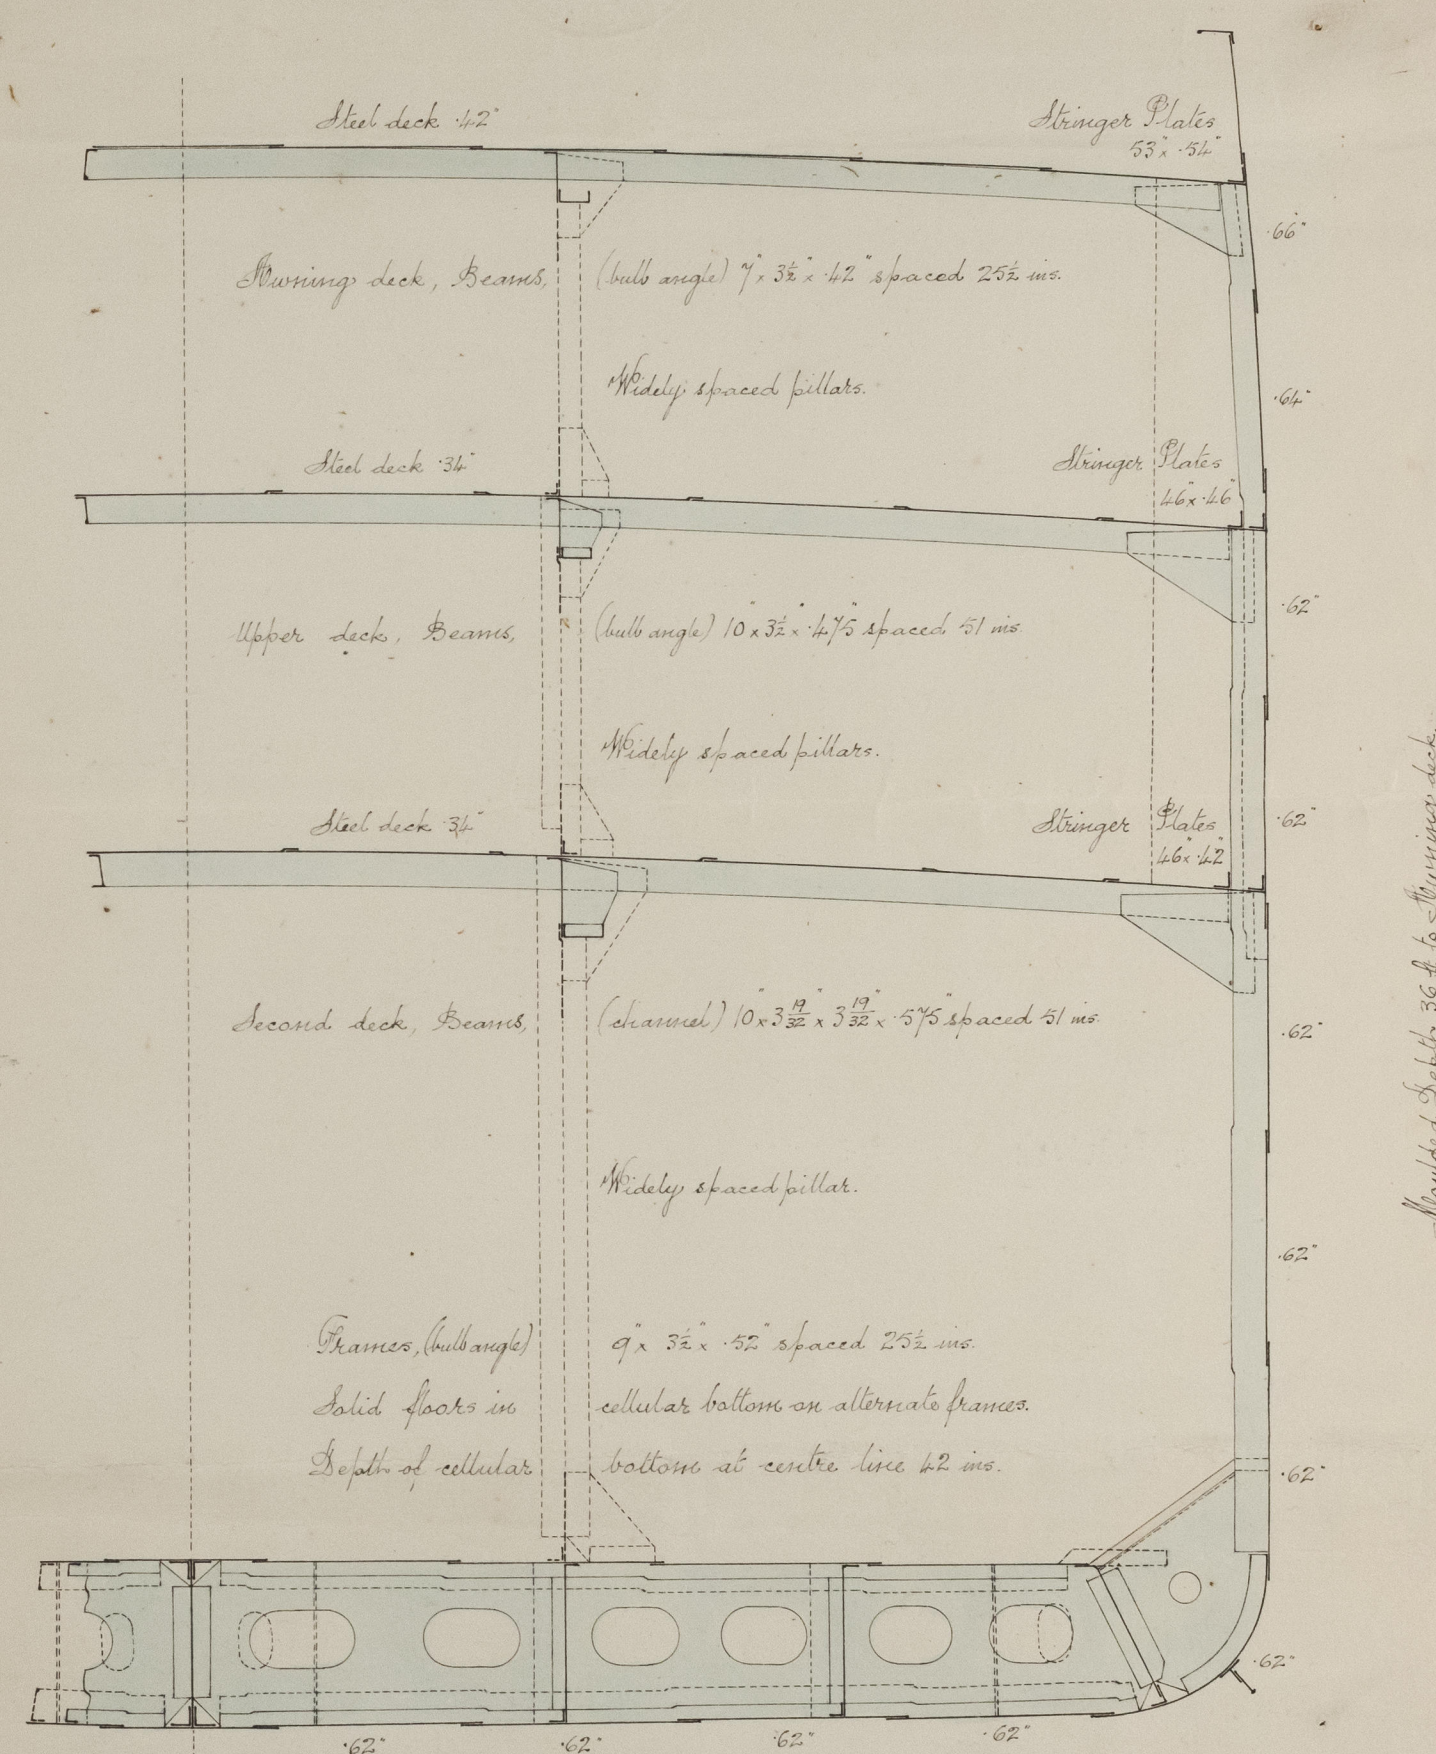 Steel deck ·42"
Stringer Plates
53" x ·54"
·66"
Awning deck, Beams, (bulb angle) 7" x 3½" x ·42" spaced 25½ ins.
Widely spaced pillars.
·64"
Steel deck ·34"
Stringer Plates
46" x ·46"
·62"
Upper deck, Beams, (bulb angle) 10" x 3½" x ·475" spaced 51 ins.
Widely spaced pillars.
Steel deck ·34"
Stringer Plates
46" x ·42"
·62"
Second deck, Beams, (channel) 10" x 3 19/32" x 3 19/32" x ·575" spaced 51 ins.
·62"
Widely spaced pillar.
·62"
Frames, (bulb angle) 9" x 3½" x ·52" spaced 25½ ins.
Solid floors in cellular bottom on alternate frames.
Depth of cellular bottom at centre line 42 ins.
·62"
·62"
·62" ·62" ·62" ·62"
Moulded Depth 36 ft to Awning deck